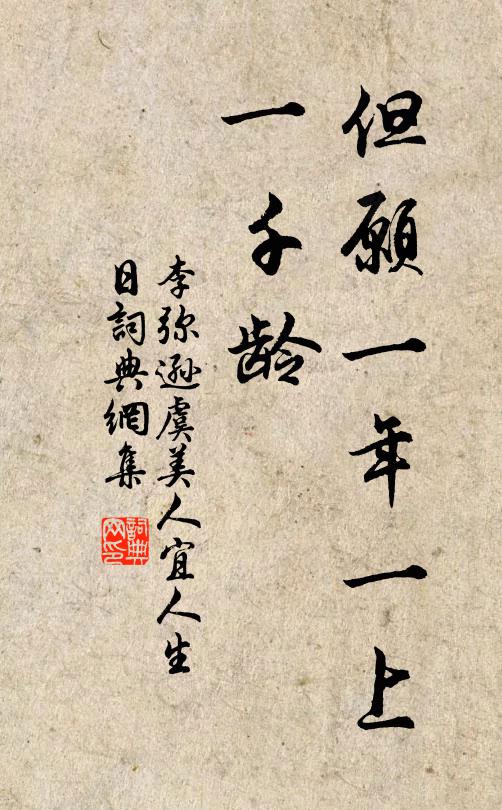 但願一年一上
一千龄
李弥遜虞美人宜人生
日詞典網集
詞典
网印